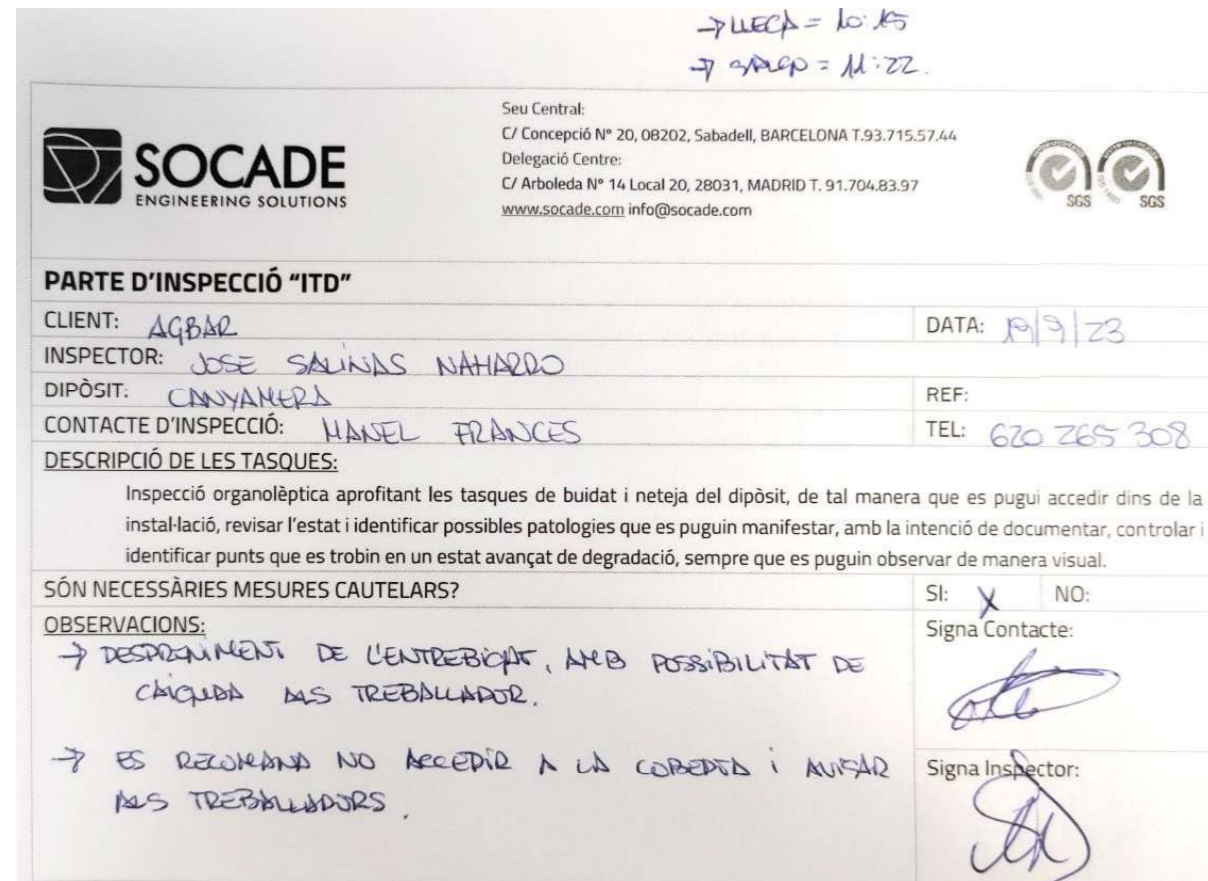 → LLEGA = 10:15
→ = 11:22.
SOCADE
ENGINEERING SOLUTIONS
Seu Central:
C/ Concepció Nº 20, 08202, Sabadell, BARCELONA T.93.715.57.44
Delegació Centre:
C/ Arboleda Nº 14 Local 20, 28031, MADRID T. 91.704.83.97
www.socade.com info@socade.com
SGS SGS
PARTE D'INSPECCIÓ “ITD”
CLIENT: AGBAR
DATA: 19/9/23
INSPECTOR: JOSE SALINAS NAHARRO
DIPÒSIT: CANYAMERA
REF:
CONTACTE D'INSPECCIÓ: MANEL FRANCES
TEL: 620 265 308
DESCRIPCIÓ DE LES TASQUES:
Inspecció organolèptica aprofitant les tasques de buidat i neteja del dipòsit, de tal manera que es pugui accedir dins de la
instal·lació, revisar l'estat i identificar possibles patologies que es puguin manifestar, amb la intenció de documentar, controlar i
identificar punts que es trobin en un estat avançat de degradació, sempre que es puguin observar de manera visual.
SÓN NECESSÀRIES MESURES CAUTELARS?
SI: X NO:
OBSERVACIONS:
→ DESPRENIMENT DE L'ENTREBIGAT, AMB POSSIBILITAT DE
CAIGUDA ALS TREBALLADOR.
→ ES RECOMANA NO ACCEDIR A LA COBERTA i AVISAR
ALS TREBALLADORS.
Signa Contacte:
Signa Inspector: